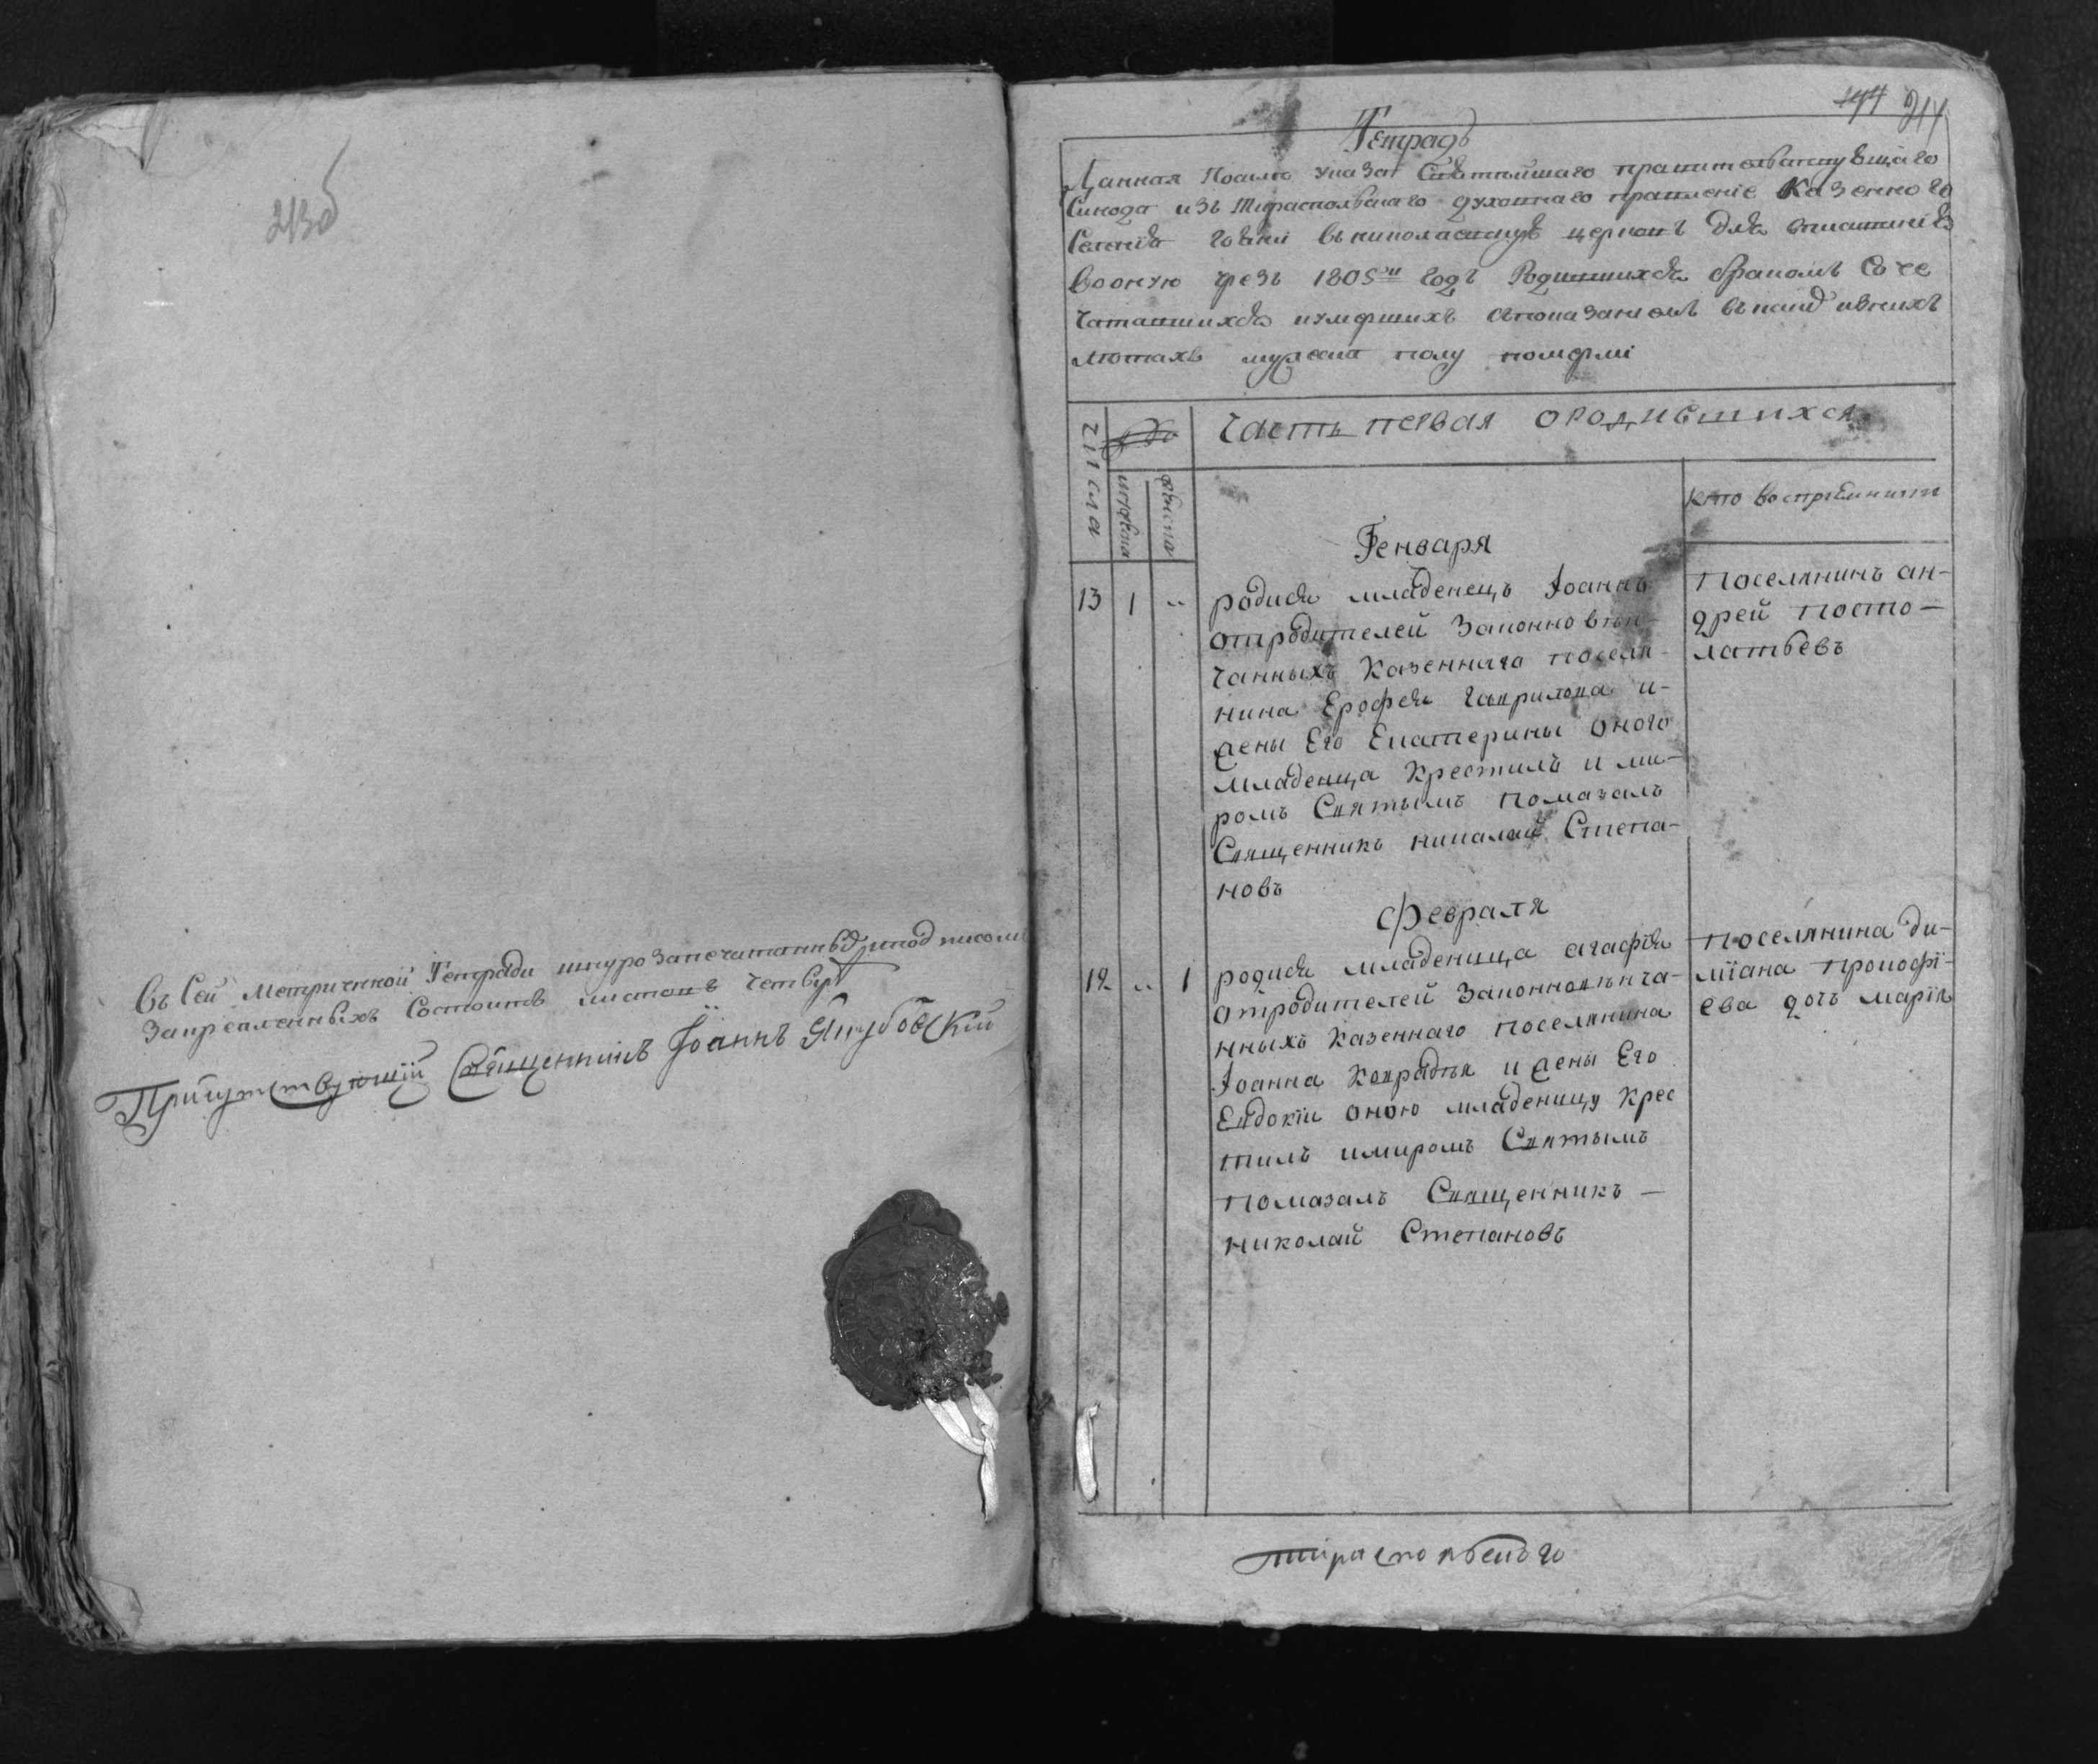 213об
Въ Сей Метрической Тетради шнурозапечатанныхъ
закрепленныхъ Состоитъ листовъ четыре
Присутствующій Священникъ Іоаннъ Якубовскій
214
Тетрадь
Данная Посилѣ указа Святѣйшаго правительствующаго
Синода изъ Тираспольскаго духовнаго правленіе Казенного
Селенія въ николаевскую церковъ Для
вооную чрезъ 1805й годъ Родившихся бракомъ Соче
таввшихся иумершихъ спобазаниемъ
лѣтахъ мужеска полу померли
числа
Часть первая ородившихся
мужеска
женска
кто восприемники
Генваря
13 1 „ родися младенецъ Іоаннъ
отродителей Законновѣн-
чанныхъ Казеннаго поселя-
нина Ерофея Гаврилова и-
жены Его Екатерины оного
младенца Крестилъ и ми-
ромъ Святымъ помазалъ
Священникъ николай Степа-
новъ
Поселянинъ ан-
дрей посто-
латьевъ
Февраля
12 „ 1 родися младеница агафія
отродителей Законновѣнча-
нныхъ Казеннаго поселянина
Іоанна Кондратья и жены Его
Евдокіи оною младеницу Крес
тилъ имиромъ Святымъ
помазалъ Священникъ -
николай Степановъ
поселянина ди-
міана прокофі-
ева дочъ марія
тираспольскаго